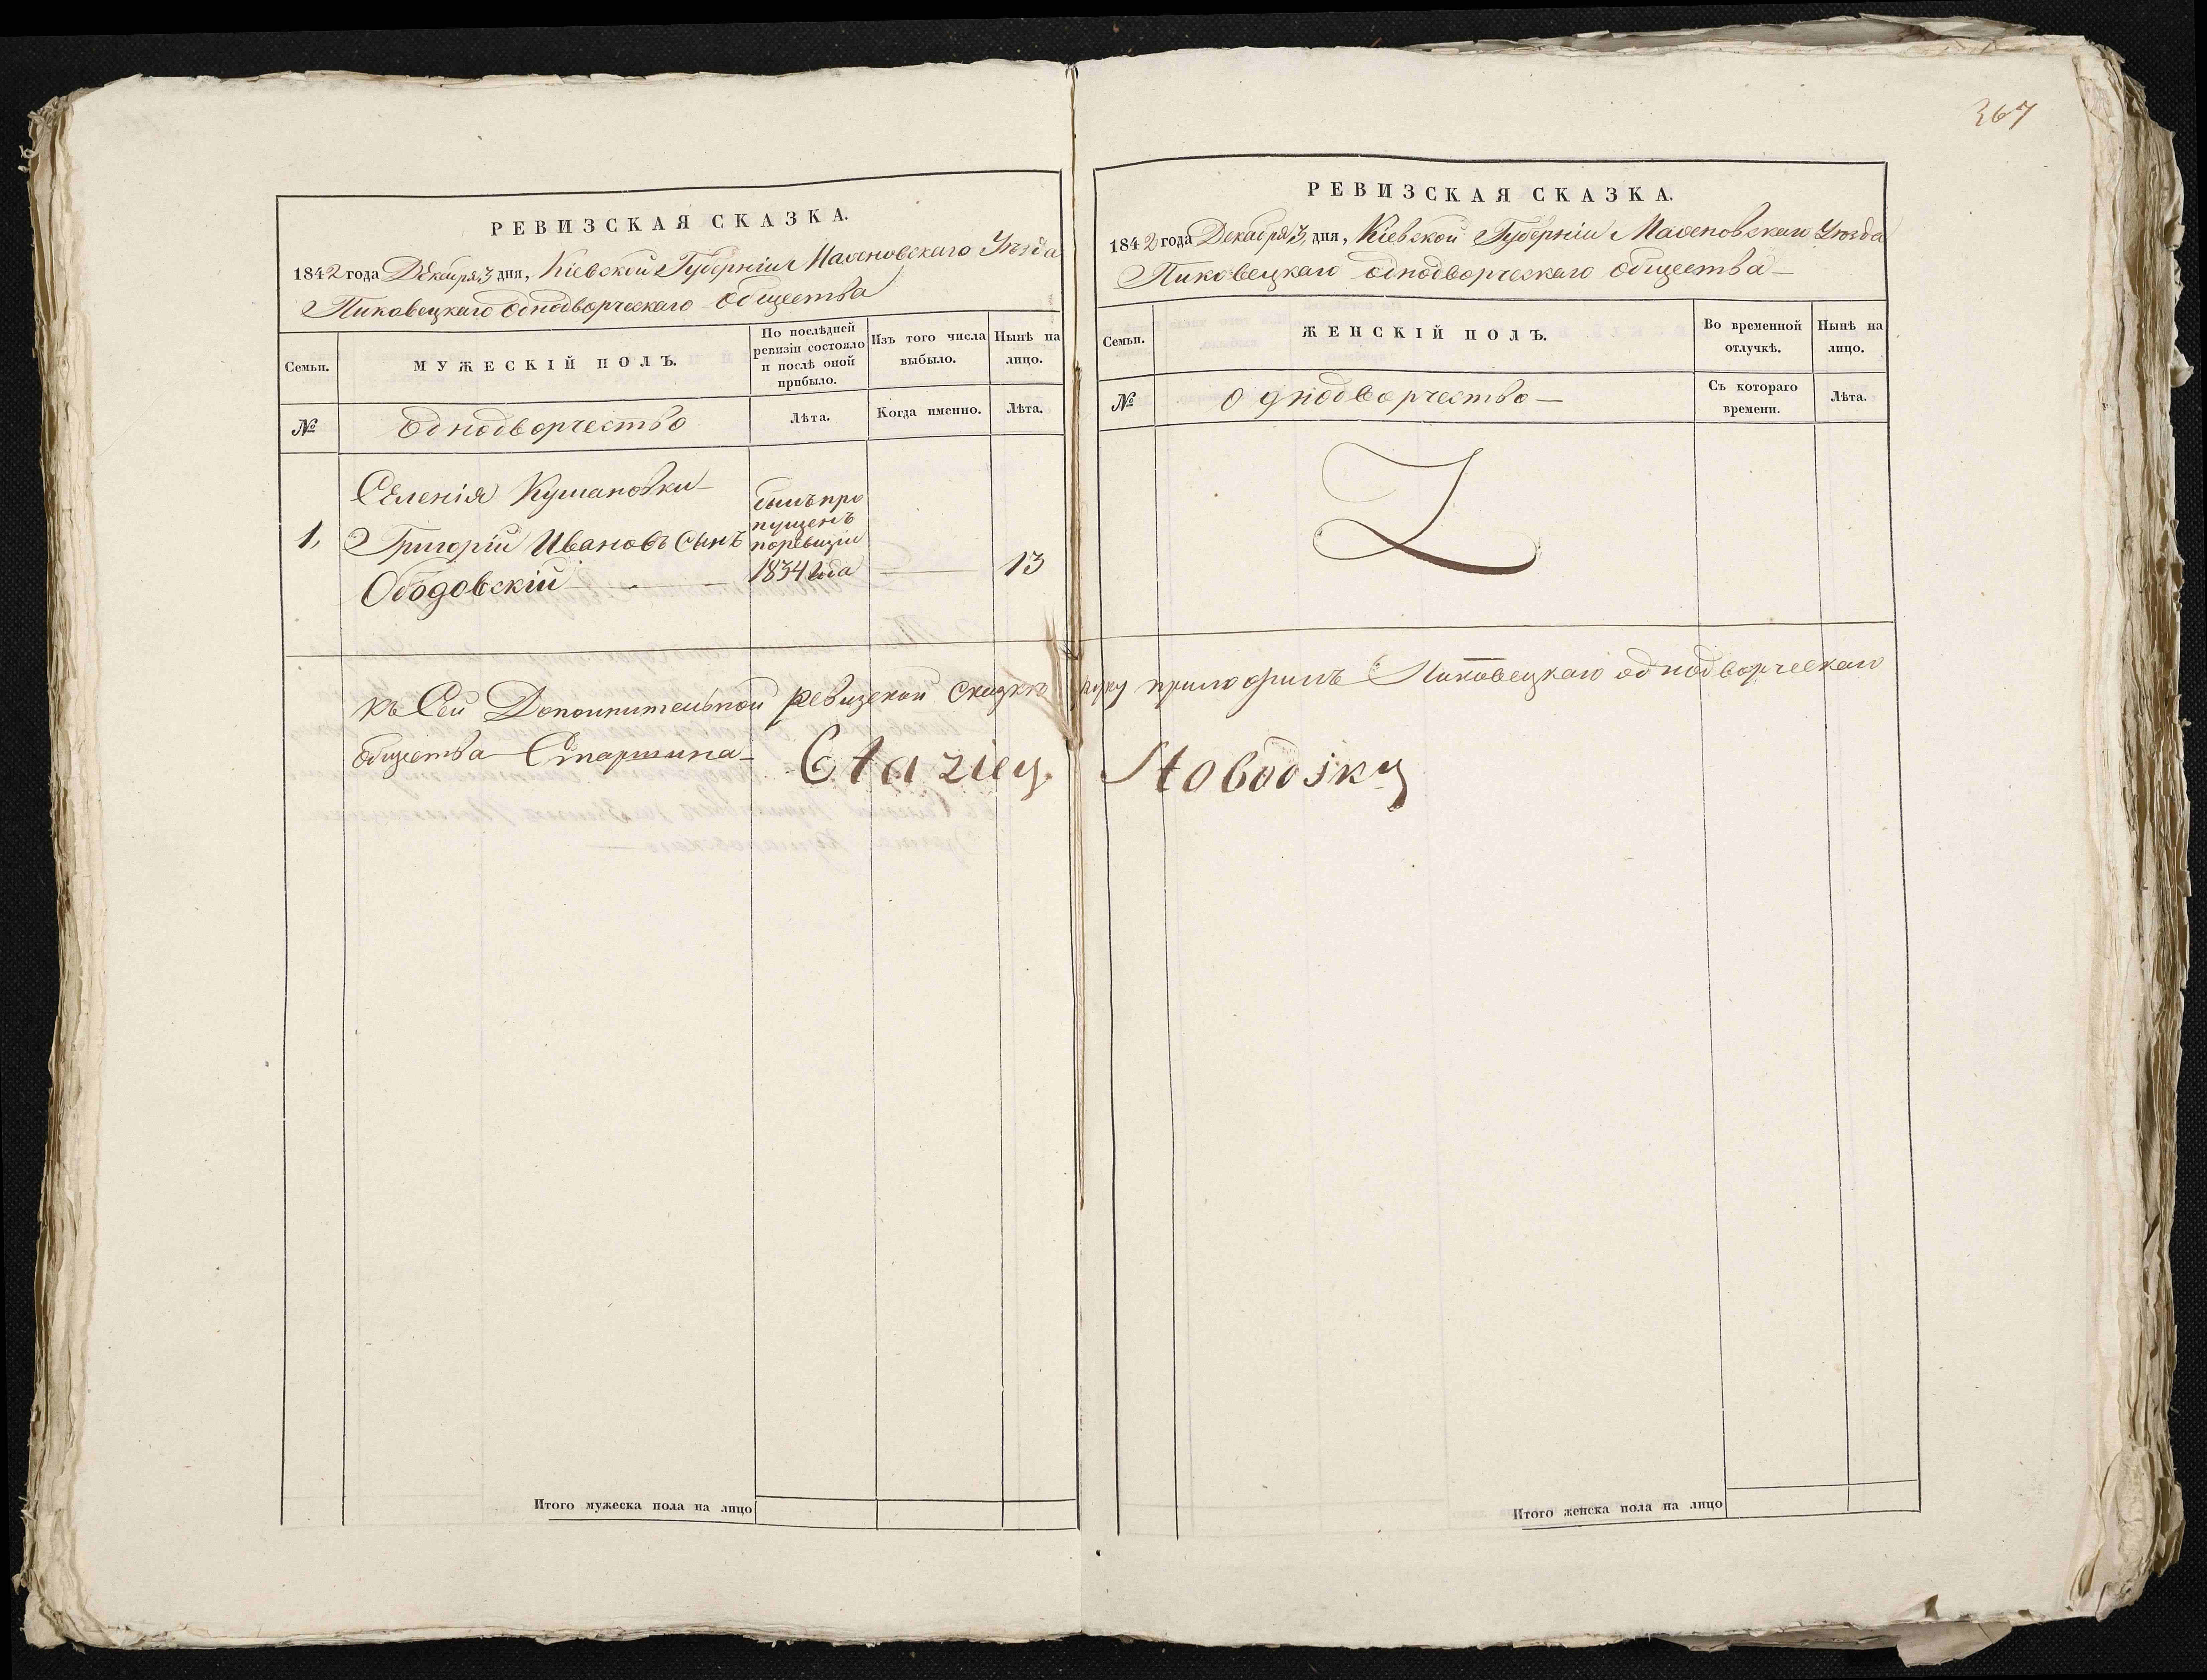 367
РЕВИЗСКАЯ СКАЗКА.
1842 года Декабря 3 дня, Кіевской Губерніи Уѣзда
Пиковецкаго однодворческаго общества
Семьи.
МУЖЕСКІЙ ПОЛЪ.
По послѣдней
ревизіи состояло
и послѣ оной
прибыло.
Изъ того числа
выбыло.
Нынѣ на
лицо.
№
Однодворчество
Лѣта.
Когда именно.
Лѣта.
Селенія Кумановки
1, Григорій Ивановъ сынъ
Ободовскій
былъ про
пущенъ
поревизіи
1834 года
13
Къ сей Дополнительной ревизской сказкѣ руку приложилъ Пиковецкаго однодворческаго
общества Старшина
Итого мужеска пола на лицо
РЕВИЗСКАЯ СКАЗКА.
1842 года Декабря 3 дня, Кіевской Губерніи Уѣзда
Пиковецкаго однодворческаго общества
Семьи.
ЖЕНСКІЙ ПОЛЪ.
Во временной
отлучкѣ.
Нынѣ на
лицо.
№
однодворчество
Съ котораго
времени.
Лѣта.
Итого женска пола на лицо